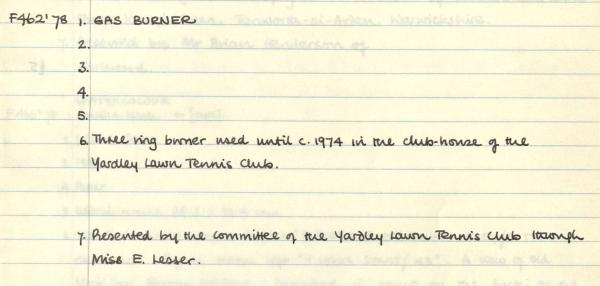 F462'78 1. GAS BURNER
2.
3.
4.
5.
6. Three ring burner used until c. 1974 in the club-house of the
Yardley Lawn Tennis Club.
7. Presented by the committee of the Yardley Lawn Tennis Club through
Miss E. Lesser.